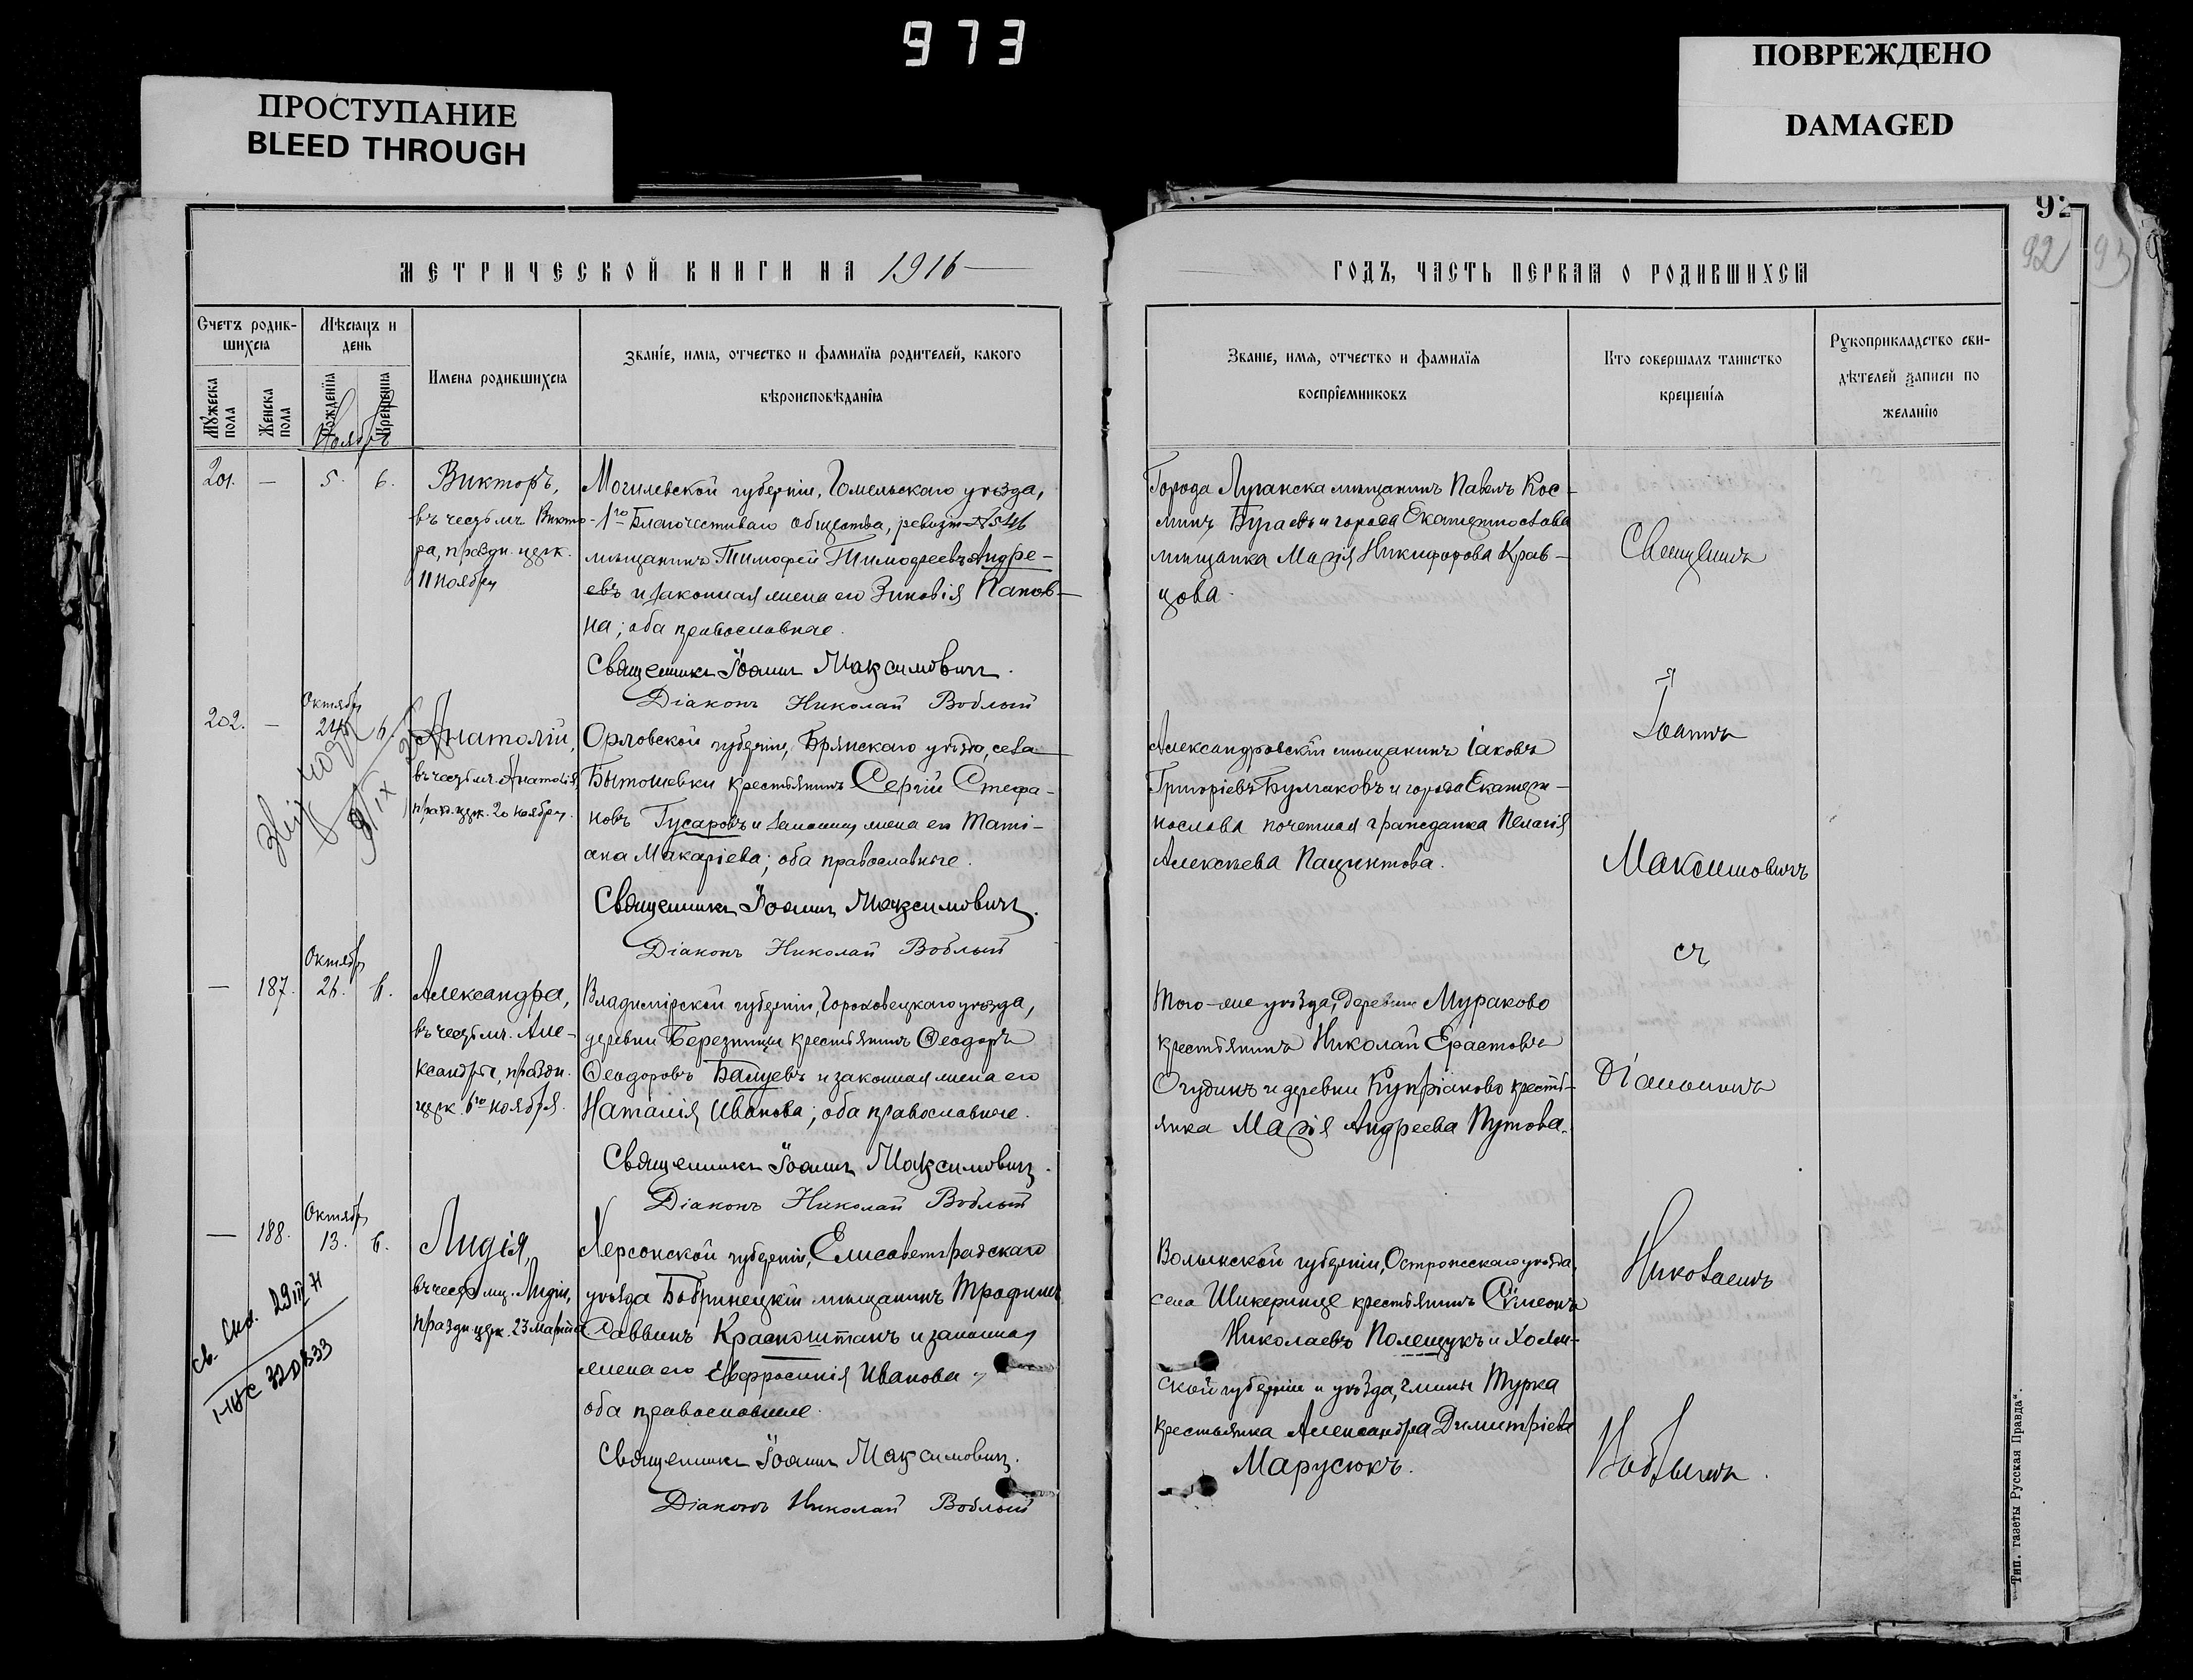 973
ПРОСТУПАНИЕ
BLEED THROUGH
ПОВРЕЖДЕНО
DAMAGED
92
92
93
МЕТРИЧЕСКОЙ КНИГИ НА 1916
ГОДЪ, ЧАСТЬ ПЕРВАЯ О РОДИВШИХСЯ
Счетъ родив-
шихся
Мѣсяцъ и
день
Мужеска
пола
Женска
пола
Рожденїя
Крещенїя
Ноябрь
Имена родившихся
Званїе, имя, отчество и фамилїя родителей, какого
вѣроисповѣданїя
Званїе, имя, отчество и фамилїя
воспрїемниковъ
Кто совершалъ таинство
крещенїя
Рукоприкладство сви-
дѣтелей записи по
желанїю
201. — 5. 6.
Викторъ,
въ честь мч. Викто-
ра, праздн. церк.
11 Ноября
Могилевской губерніи, Гомельскаго уѣзда,
1го Благочестиваго общества, ревизіи №546
мѣщанинъ Тимофей Тимофеевъ Андре-
евъ и законная жена его Зиновія Панов-
на; оба православные.
Священникъ Іоаннъ Максимовичъ.
Діаконъ Николай Воблый
Города Луганска мѣщанинъ Павелъ Кос-
минъ Бугаевъ и города Екатеринослава
мѣщанка Марія Никифорова Крав-
цова.
Священникъ
Іоаннъ
Максимовичъ
съ
Діакономъ
Николаемъ
Воблымъ.
202. — Октября
24. 6.
Анатолій,
въ честь мч. Анатолія,
празд. церк. 20 Ноября.
Орловской губерніи, Брянскаго уѣзда, села
Бытошевки крестьянинъ Сергій Стефа-
новъ Гусаровъ и законная жена его Тати-
ана Макаріева; оба православные.
Священникъ Іоаннъ Максимовичъ.
Діаконъ Николай Воблый
Александровскій мѣщанинъ Іаковъ
Григоріевъ Булгаковъ и города Екатери-
нослава почетная гражданка Пелагія
Алексѣева Пациктова.
— 187. Октября
26. 6.
Александра,
въ честь мч. Але-
ксандры, праздн.
церк. 6го ноября.
Владимірской губерніи, Гороховецкаго уѣзда,
деревни Березницы крестьянинъ Ѳеодоръ
Ѳеодоровъ Балуевъ и законная жена его
Наталія Иванова; оба православные.
Священникъ Іоаннъ Максимовичъ.
Діаконъ Николай Воблый
Того-же уѣзда, деревни Мураково
крестьянинъ Николай Ерастовъ
Очудинъ и деревни Купріаново кресть-
янка Марія Андреева Путова.
— 188. Октября
13. 6.
Лидія,
въ честь мц. Лидіи,
праздн. церк. 23 марта
Св. 29 III 71
Херсонской губерніи, Елисаветградскаго
уѣзда Бобринецкій мѣщанинъ Трофимъ
Саввинъ Красноштанъ и законная
жена его Евфросинія Иванова,
оба православные.
Священникъ Іоаннъ Максимовичъ.
Діаконъ Николай Воблый
Волынской губерніи, Острожскаго уѣзда,
села Шикеринце крестьянинъ Сѵмеонъ
Николаевъ Полещукъ и Холм-
ской губерніи и уѣзда, гмины Турка
крестьянка Александра Димитріева
Марусюкъ.
Тип. газеты „Русская Правда“.